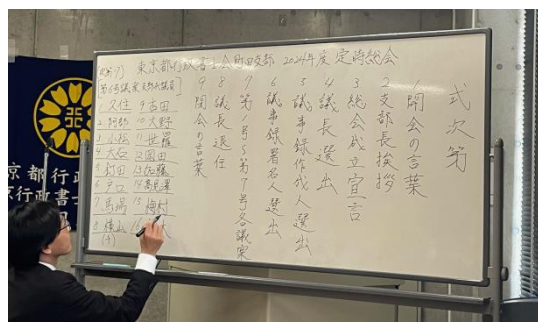 東京都行政書士会町田支部 2024年度 定時総会
式次第
1 開会の言葉
2 支部長挨拶
3 総会成立宣言
4 議長選出
5 議事録作成人選出
6 議事録署名人選出
7 第1号〜第7号各議案
8 議長退任
9 閉会の言葉
久住 9 吉田
10 大野
3 小松 11 世羅
4 大石 12 園田
5 村田 13 佐藤
14 高見澤
7 馬場 15 梅村
8 横山 16
京都行政
京行政書士